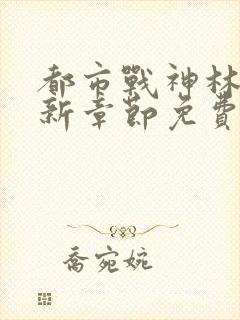 都市戰神林
新章節免費
喬宛婉